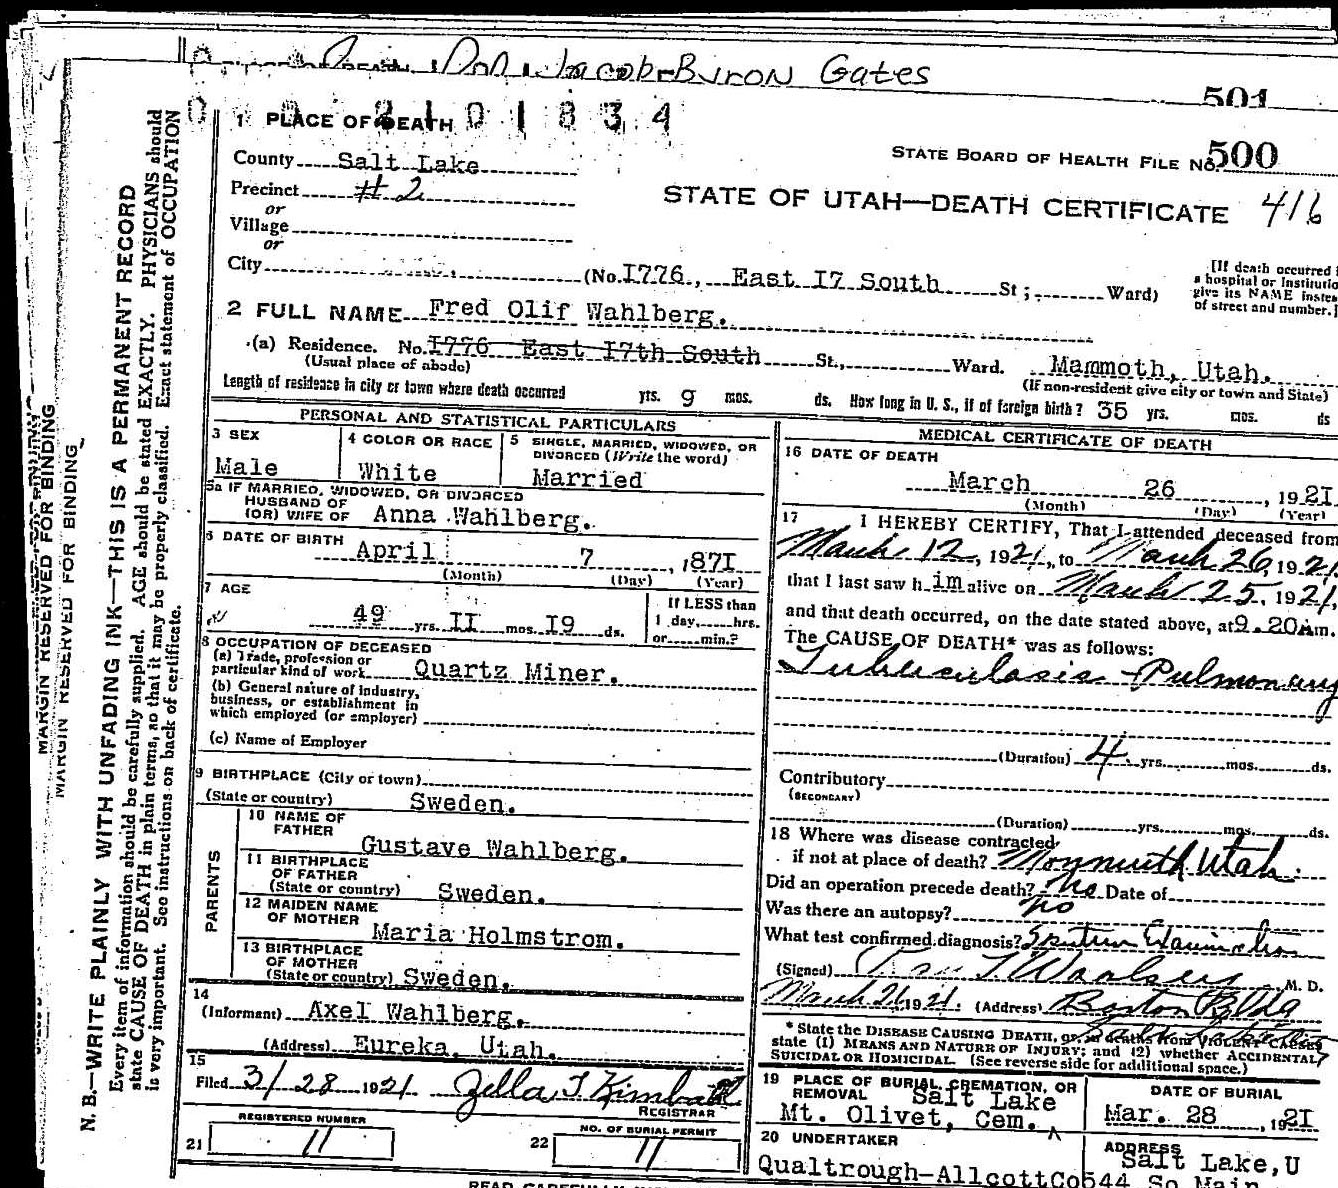 Jacob Byron Gates
501
2101834
1 PLACE OF DEATH
STATE BOARD OF HEALTH FILE NO. 500
County Salt Lake
Precinct #2
STATE OF UTAH—DEATH CERTIFICATE 416
or
Village
or
City (No. I776, East I7 South St ; Ward)
[If death occurred
a hospital or institutio
give its NAME instea
of street and number.]
2 FULL NAME Fred Olif Wahlberg.
(a) Residence. No. I776 East I7th South St., Ward. Mammoth, Utah.
(Usual place of abode) (If non-resident give city or town and State)
Length of residence in city or town where death occurred yrs. 9 mos. ds. How long in U. S., if of foreign birth? 35 yrs. mos. ds
PERSONAL AND STATISTICAL PARTICULARS
3 SEX
Male
4 COLOR OR RACE
White
5 SINGLE, MARRIED, WIDOWED, OR
DIVORCED (Write the word)
Married
5a IF MARRIED, WIDOWED, OR DIVORCED
HUSBAND OF
(OR) WIFE OF Anna Wahlberg.
6 DATE OF BIRTH
April 7, 187I
(Month) (Day) (Year)
7 AGE
49 yrs. II mos. I9 ds.
If LESS than
1 day, hrs.
or min.?
8 OCCUPATION OF DECEASED
(a) Trade, profession or
particular kind of work Quartz Miner.
(b) General nature of industry,
business, or establishment in
which employed (or employer)
(c) Name of Employer
9 BIRTHPLACE (City or town)
(State or country) Sweden.
PARENTS
10 NAME OF
FATHER
Gustave Wahlberg.
11 BIRTHPLACE
OF FATHER
(State or country) Sweden.
12 MAIDEN NAME
OF MOTHER
Maria Holmstrom.
13 BIRTHPLACE
OF MOTHER
(State or country) Sweden.
14
(Informant) Axel Wahlberg.
(Address) Eureka, Utah.
15
Filed 3/28 1921 Zella T. Kimball
REGISTRAR
REGISTERED NUMBER
21 11
NO. OF BURIAL PERMIT
22 11
MEDICAL CERTIFICATE OF DEATH
16 DATE OF DEATH
March 26, 192I
(Month) (Day) (Year)
17 I HEREBY CERTIFY, That I attended deceased from
March 12, 1921, to March 26, 1921
that I last saw him alive on March 25, 1921,
and that death occurred, on the date stated above, at 9.20 A.m.
The CAUSE OF DEATH* was as follows:
Tuberculosis - Pulmonary
(Duration) 4 yrs. mos. ds.
Contributory
(SECONDARY)
(Duration) yrs. mos. ds.
18 Where was disease contracted,
if not at place of death? Monmouth Utah.
Did an operation precede death? No Date of
Was there an autopsy? No
What test confirmed diagnosis? Sputum Examination
(Signed) Woolsey M. D.
March 26 1921. (Address) Boston Bldg
* State the DISEASE CAUSING DEATH, or, in deaths from VIOLENT CAUSES
state (1) MEANS AND NATURE OF INJURY; and (2) whether ACCIDENTAL,
SUICIDAL OR HOMICIDAL. (See reverse side for additional space.)
19 PLACE OF BURIAL, CREMATION, OR
REMOVAL Salt Lake
Mt. Olivet, Cem. ^
DATE OF BURIAL
Mar. 28, 192I
20 UNDERTAKER
Qualtrough-AllcottCo
ADDRESS
Salt Lake,U
544 So Main
MARGIN RESERVED FOR BINDING
MARGIN RESERVED FOR BINDING
N. B.—WRITE PLAINLY WITH UNFADING INK—THIS IS A PERMANENT RECORD
Every item of information should be carefully supplied. AGE should be stated EXACTLY. PHYSICIANS should
state CAUSE OF DEATH in plain terms, so that it may be properly classified. Exact statement of OCCUPATION
is very important. See instructions on back of certificate.